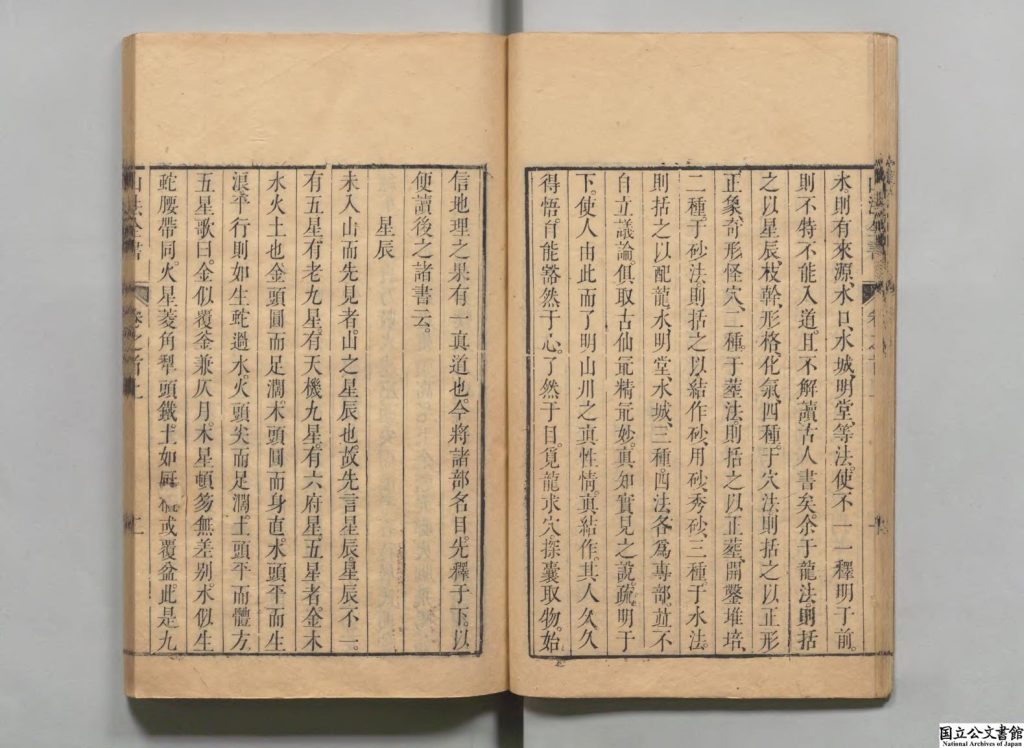 水則有來源、水口、水城、明堂、等法。使不一一釋明于前。
則不特不能入道。且不解讀古人書矣。余于龍法。則括
之以星辰、枝幹、形格、化氣、四種。于穴法則括之以正形
正象、奇形怪穴、二種。于葬法則括之以正葬、開鑿堆培、
二種。于砂法則括之以結作砂、用砂、秀砂、三種。于水法。
則括之以配龍水、明堂、水城、三種。四法各爲專部。並不
自立議論。俱取古仙冗精冗妙。真知實見之說。疏明于
下。使人由此而了明山川之真性情。真結作。其人久久
得悟。自能豁然于心。了然于目。覓龍求穴。探囊取物。始
信地理之果有一真道也。今將諸部名目。先釋于下。以
便讀後之諸書云。
星辰
未入山而先見者。山之星辰也。故先言星辰。星辰不一。
有五星。有老九星。有天機九星。有六府星。五星者。金木
水火土也。金頭圓而足濶。木頭圓而身直。水頭平而生
浪。平行則如生蛇過水。火頭尖而足濶。土頭平而體方
五星歌曰。金似覆釜兼仄月。木星頓笏無差别。水似生
蛇腰帶同。火星菱角犁頭鐵。土如厨櫃或覆盆。此是九
山法全書 卷之首上 二
国立公文書館
National Archives of Japan